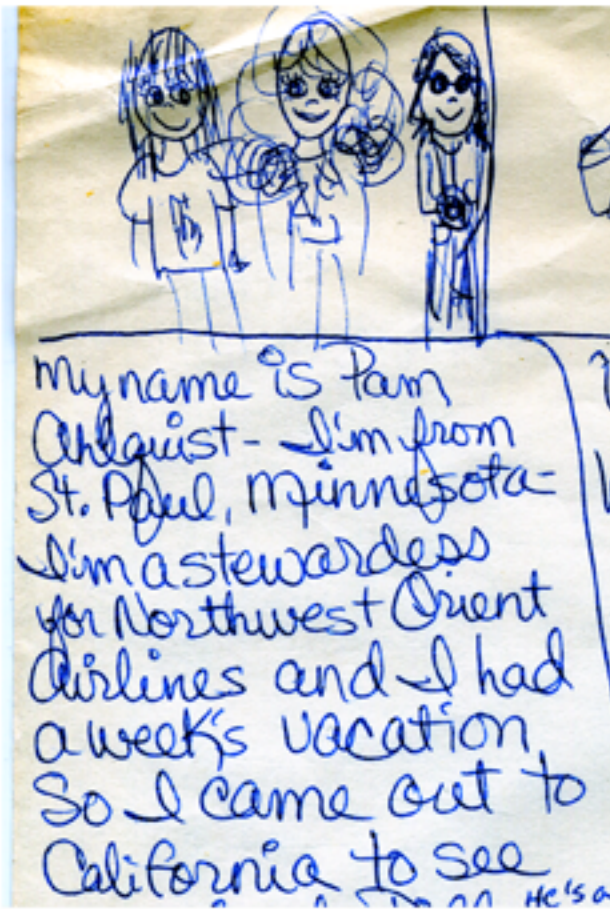 my name is Pam
Ahlquist - I'm from
St. Paul, Minnesota -
I'm a stewardess
for Northwest Orient
Airlines and I had
a week's vacation
So I came out to
California to see
He's a